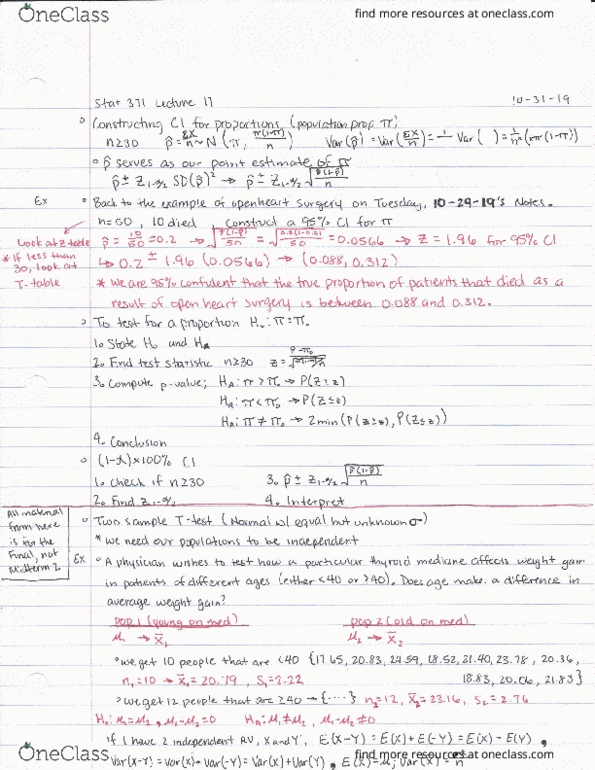 OneClass
find more resources at oneclass.com
Stat 371 Lecture 17
10-31-19
° Constructing CI for proportions (population prop π)
n≥30 p̂ = ΣX/n ~ N(π, π(1-π)/n) Var(p̂) = Var(ΣX/n) = 1/ Var( ) = 1/n² (nπ(1-π))
° p̂ serves as our point estimate of π
p̂ ± Z₁₋α/₂ SD(p̂)² → p̂ ± Z₁₋α/₂ √(p̂(1-p̂)/n)
Ex ° Back to the example of openheart surgery on Tuesday, 10-29-19's Notes.
n=50, 10 died construct a 95% CI for π
Look at z table
* If less than 30, look at T-table
p̂ = 10/50 = 0.2 → √(p̂(1-p̂)/50) = √(0.2(1-0.2)/50) = 0.0566 → Z = 1.96 for 95% CI
↳ 0.2 ± 1.96 (0.0566) → (0.088, 0.312)
* We are 95% confident that the true proportion of patients that died as a
result of open heart surgery is between 0.088 and 0.312.
° To test for a proportion H₀: π = π₀
1. State H₀ and Hᴀ
2. Find test statistic n≥30 z =
3. Compute p-value; Hᴀ: π > π₀ → P(Z ≥ z)
Hᴀ: π < π₀ → P(Z ≤ z)
Hᴀ: π ≠ π₀ → 2min(P(Z≥z), P(Z≤z))
4. Conclusion
° (1-α)×100% CI
1. Check if n≥30 3. p̂ ± Z₁₋α/₂ √(p̂(1-p̂)/n)
2. Find Z₁₋α/₂ 4. Interpret
All material
from here
is for the
Final, not
Midterm 2
° Two sample T-test (Normal w/ equal but unknown σ)
* We need our populations to be independent
Ex ° A physician wishes to test how a particular thyroid medicine affects weight gain
in patients of different ages (either <40 or >40). Does age make a difference in
average weight gain?
pop 1 (young on med) pop 2 (old on med)
μ₁ → X̄₁ μ₂ → X̄₂
° we get 10 people that are <40 {17.65, 20.83, 24.59, 18.52, 21.40, 23.78, 20.36,
n₁=10 → x̄₁ = 20.79, S₁=2.22 18.83, 20.06, 21.83}
° we get 12 people that are ≥40 → {····} n₂=12, x̄₂=23.16, S₂=2.76
H₀: μ₁=μ₂, μ₁-μ₂=0 Hᴀ: μ₁≠μ₂, μ₁-μ₂≠0
If I have 2 independent RV, X and Y, E(X-Y) = E(X) + E(-Y) = E(X) - E(Y),
Var(X-Y) = Var(X) + Var(-Y) = Var(X) + Var(Y),
OneClass
find more resources at oneclass.com